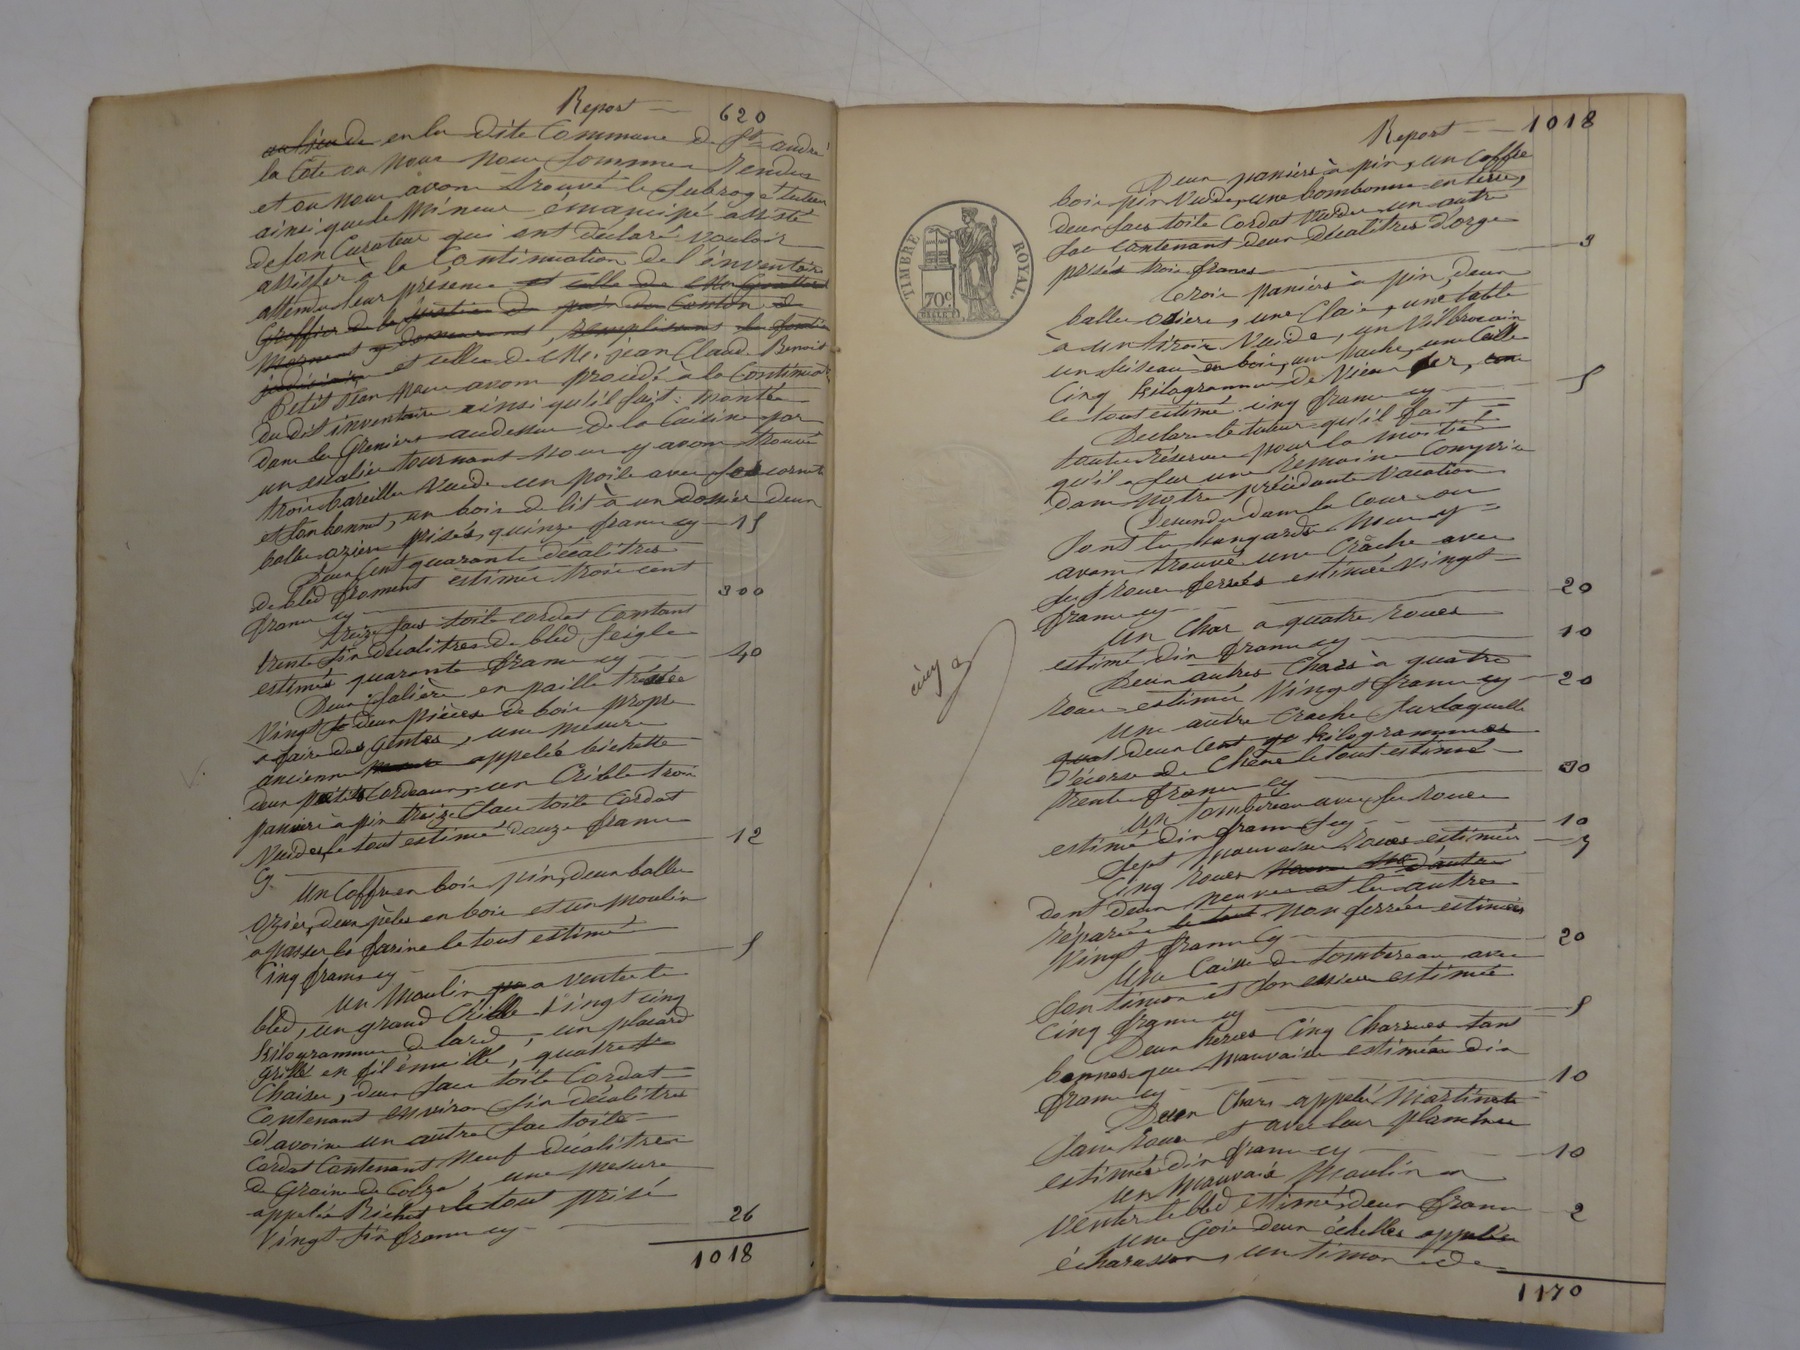 Report — 620
au lieu de en la dite Commune de St andré
la Côte ou nous nous sommes rendus
et ou nous avons trouvé le subrogé tuteur
ainsi que le Mineur émancipé assisté
de son Curateur qui ont déclaré vouloir
assister à la Continuation de l'inventaire
attendu leur présence et celle de
Greffier de la justice de paix du Canton de
Mornant y demeurant, remplissant les fonctions
judiciaire et celle de Me jean Claude Benoit
Petit Jean Nous avons procédé à la Continuation
du dit inventaire ainsi qu'il suit: monté
dans les Greniers audessus de la Cuisine par
un escalier tournant nous y avons trouvé
trois bareilles Vuide un poile avec ses cornets
et son bonnet, un bois de lit à un dossier deux
balles ozière prisés, quinze francs cy — 15
Deux Cent quarante décalitres
de bled froment estimés trois cent
francs cy — 300
treize sacs toile cordat Contenant
trente six décalitres de bled seigle
estimés quarante francs cy — 40
Deux salière en paille tréssée
Vingt deux pièces de bois propre
a faire des Gentes, une mesure
ancienne appelée bichette
deux petits Cordeaux, un Crible trois
paniers à pin treize sacs toile Cordat
Vuides le tout estimé douze francs
cy — 12
Un Coffre en bois pin, deux balles
Ozier, deux pèles en bois et un moulin
a passer la farine le tout estimé
Cinq francs cy — 5
Un Moulin a Venter le
bled, un grand Crible Vingt cinq
kilogrammes de lard, un placard
grillé en fil émaillé, quatre
Chaises, deux sacs toile Cordat
Contenant environ six décalitres
d'avoine un autre sac toile
Cordat Contenant Neuf décalitres
de Graine de Colza, une mesure
appelée Bichet le tout prisé
Vingt six francs cy — 26
1018
Report — 1018
Deux paniers à pin, un Coffre
bois pin Vuide, une bombonne en terre,
deux sacs toile Cordat Vuides un autre
sac Contenant deux Décalitres d'orge
prisés trois francs — 3
trois paniers à pin, deux
balles osière, une Claie, une table
à un tiroir Vuide, un Vilbrecain
un siseau en bois, une hache, une
Cinq kilogrammes de Vieux fer,
le tout estimé cinq francs cy — 5
Declare le tuteur qu'il fait
toute réserve pour la moitié
qu'il a sur une Remoire Comprise
dans Notre précédente Vacation
Descendu dans la Cour ou
sont les hangards Nous y
avons trouvé une Crâche avec
ses roues ferrés estimée Vingt
francs cy — 20
Un Char a quatre roues
estimé dix francs cy — 10
Deux autres Chars à quatre
roues estimés Vingt francs cy — 20
Une autre Crache sur laquelle
quat deux Cent qu kilogrammes
d'écorse de Chêne le tout estimé
trente francs cy — 30
Un tombereau avec ses roues
estimé dix francs cy — 10
Sept mauvaises roues estimées — 7
Cinq roues
dont deux neuves et les autres
réparée le tout non ferrées estimées
Vingt francs cy — 20
Une Caisse de tombereau avec
son timon et son essieu estimée
Cinq francs cy — 5
Deux herses Cinq Charrues tans
bonnes que mauvaise estimées dix
francs cy — 10
Deux Chars appelés Martinets
sans roues et avec leur plambree
estimés dix francs cy — 10
Un Mauvais Moulin a
Venter le bled estimé, deux francs — 2
Une Goie deux échelles appelées
écharasson, un timon de
1170
TIMBRE ROYAL.
70c.